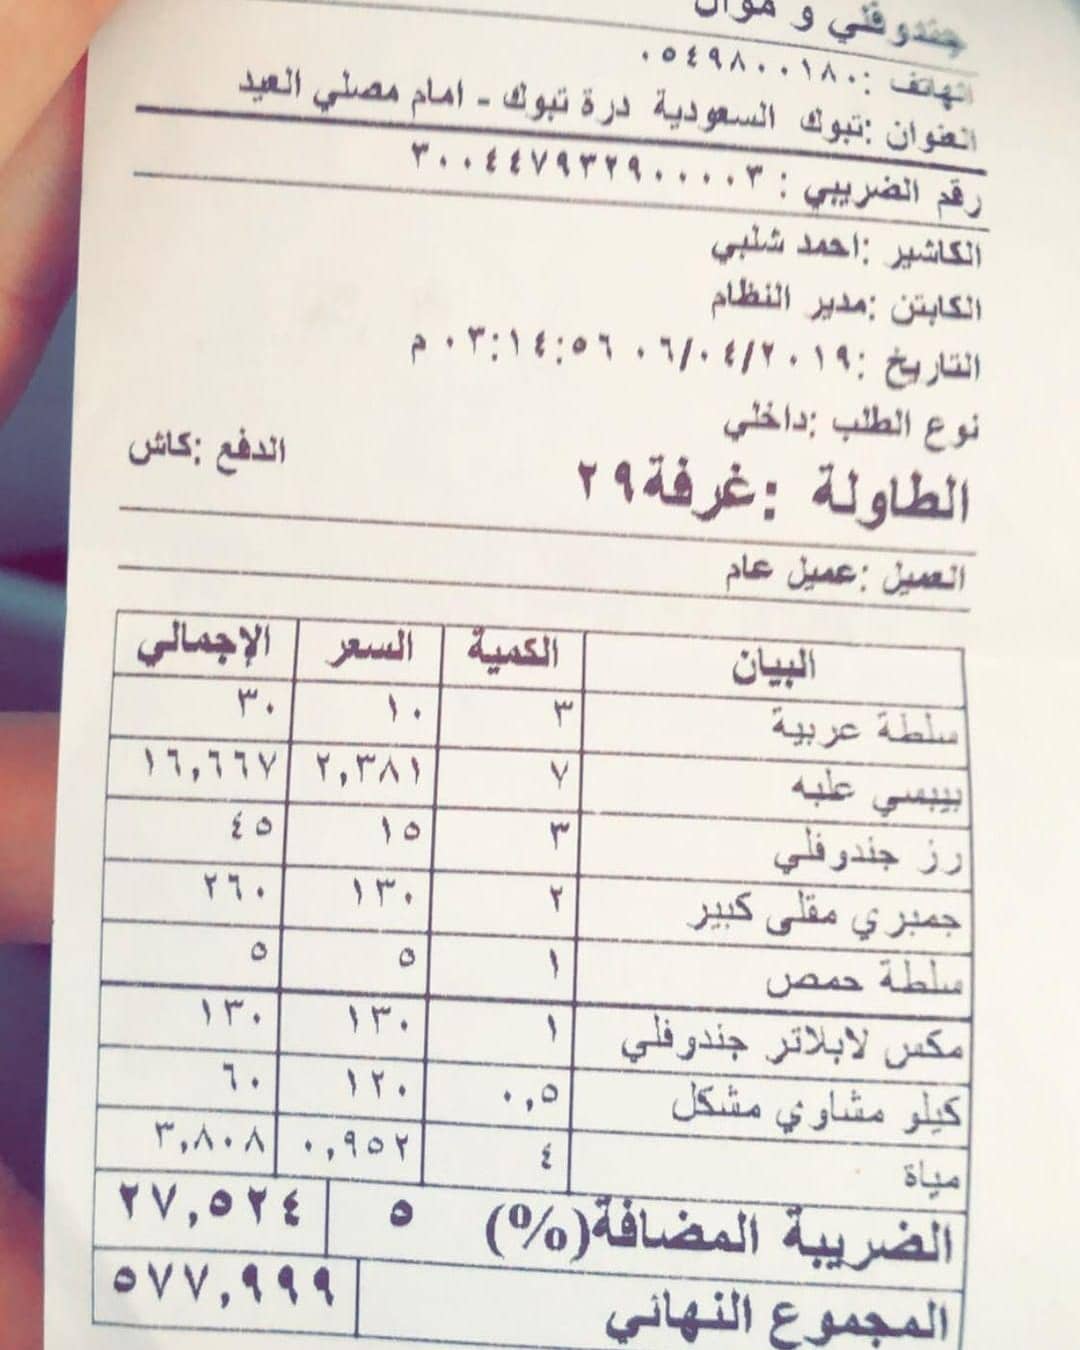 جندوفلي و موال
الهاتف :٠٥٤٩٨٠٠١٨٠
العنوان :تبوك السعودية درة تبوك - امام مصلي العيد
رقم الضريبي : ٣٠٠٤٤٧٩٣٢٩٠٠٠٠٣
الكاشير :احمد شلبي
الكابتن :مدير النظام
التاريخ :٠٦/٠٤/٢٠١٩ ٠٣:١٤:٥٦ م
نوع الطلب :داخلي
الدفع :كاش
الطاولة :غرفة٢٩
العميل :عميل عام
البيان الكمية السعر الإجمالي
سلطة عربية ٣ ١٠ ٣٠
بيبسي علبه ٧ ٢,٣٨١ ١٦,٦٦٧
رز جندوفلي ٣ ١٥ ٤٥
جمبري مقلى كبير ٢ ١٣٠ ٢٦٠
سلطة حمص ١ ٥ ٥
مكس لابلاتر جندوفلي ١ ١٣٠ ١٣٠
كيلو مشاوي مشكل ٠,٥ ١٢٠ ٦٠
مياة ٤ ٠,٩٥٢ ٣,٨٠٨
الضريبة المضافة(%) ٥ ٢٧,٥٢٤
المجموع النهائي ٥٧٧,٩٩٩